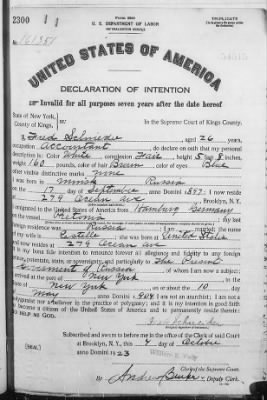 2300
Form 2203
DUPLICATE
U. S. DEPARTMENT OF LABOR
No. 161351
UNITED STATES OF AMERICA
DECLARATION OF INTENTION
Invalid for all purposes seven years after the date hereof
State of New York,
County of Kings,
In the Supreme Court of Kings County.
I, Fred aged 26 years,
occupation Accountant do declare on oath that my personal
description is: Color White complexion Fair height 5 feet 8 inches
weight 160 pounds, color of hair Brown color of eyes Blue
other visible distinctive marks none
I was born in Minsk Russia
on the 17 day of September anno Domini 1897; I now reside
at 279 Ocean Ave Brooklyn, N.Y.
I emigrated to the United States of America from Hamburg Germany
on the vessel my last
foreign residence was Russia I am married; the name
of my wife is she was born in United States
and now resides at 279 Ocean Ave
It is my bona fide intention to renounce forever all allegiance and fidelity to any foreign
prince, potentate, state, or sovereignty, and particularly to The Present
Government of Russia of whom I am now a subject;
I arrived at the port of New York in the
State of New York on or about the 10 day
of May anno Domini 1904 I am not an anarchist; I am not a
polygamist nor a believer in the practice of polygamy; and it is my intention in good faith
to become a citizen of the United States of America and to permanently reside therein:
SO HELP ME GOD.
Subscribed and sworn to before me in the office of the Clerk of said Court
at Brooklyn, N.Y., this 4 day of October
anno Domini 1923
[SEAL.]
Clerk of the Supreme Court.
By Deputy Clerk.